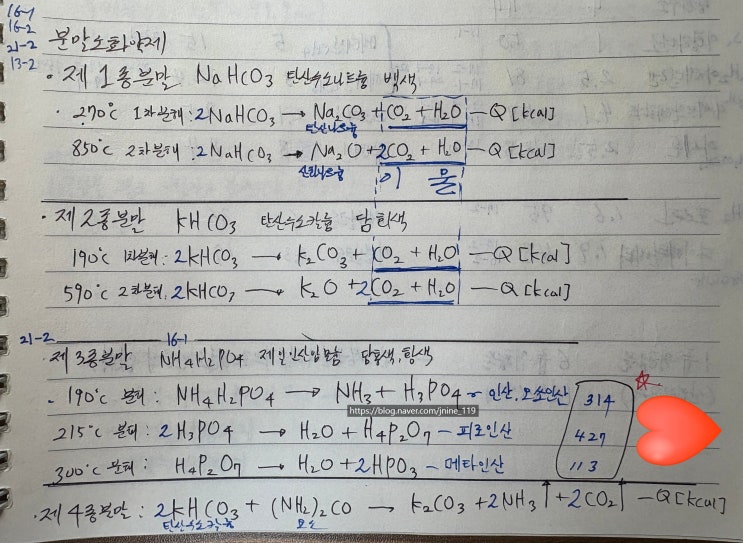 16-1
16-2
21-2
13-2
분말소화약제
· 제1종분말 NaHCO3 탄산수소나트륨 백색
· 270℃ 1차분해 : 2NaHCO3 → Na2CO3 + CO2 + H2O — Q [kcal]
탄산나트륨
850℃ 2차분해 : 2NaHCO3 → Na2O + 2CO2 + H2O — Q [kcal]
산화나트륨
이 물
· 제2종분말 KHCO3 탄산수소칼륨 담회색
190℃ 1차분해 : 2KHCO3 → K2CO3 + CO2 + H2O — Q [kcal]
590℃ 2차분해 : 2KHCO3 → K2O + 2CO2 + H2O — Q [kcal]
21-2
16-1
· 제3종분말 NH4H2PO4 제일인산암모늄 담홍색, 황색
· 190℃ 분해 : NH4H2PO4 → NH3 + H3PO4 ~ 인산, 오쏘인산 314
https://blog.naver.com/jnine_119
215℃ 분해 : 2H3PO4 → H2O + H4P2O7 - 피로인산 427
300℃ 분해 : H4P2O7 → H2O + 2HPO3 - 메타인산 113
· 제4종분말 : 2KHCO3 + (NH2)2CO → K2CO3 + 2NH3↑ + 2CO2↑ — Q [kcal]
탄산수소칼륨 요소